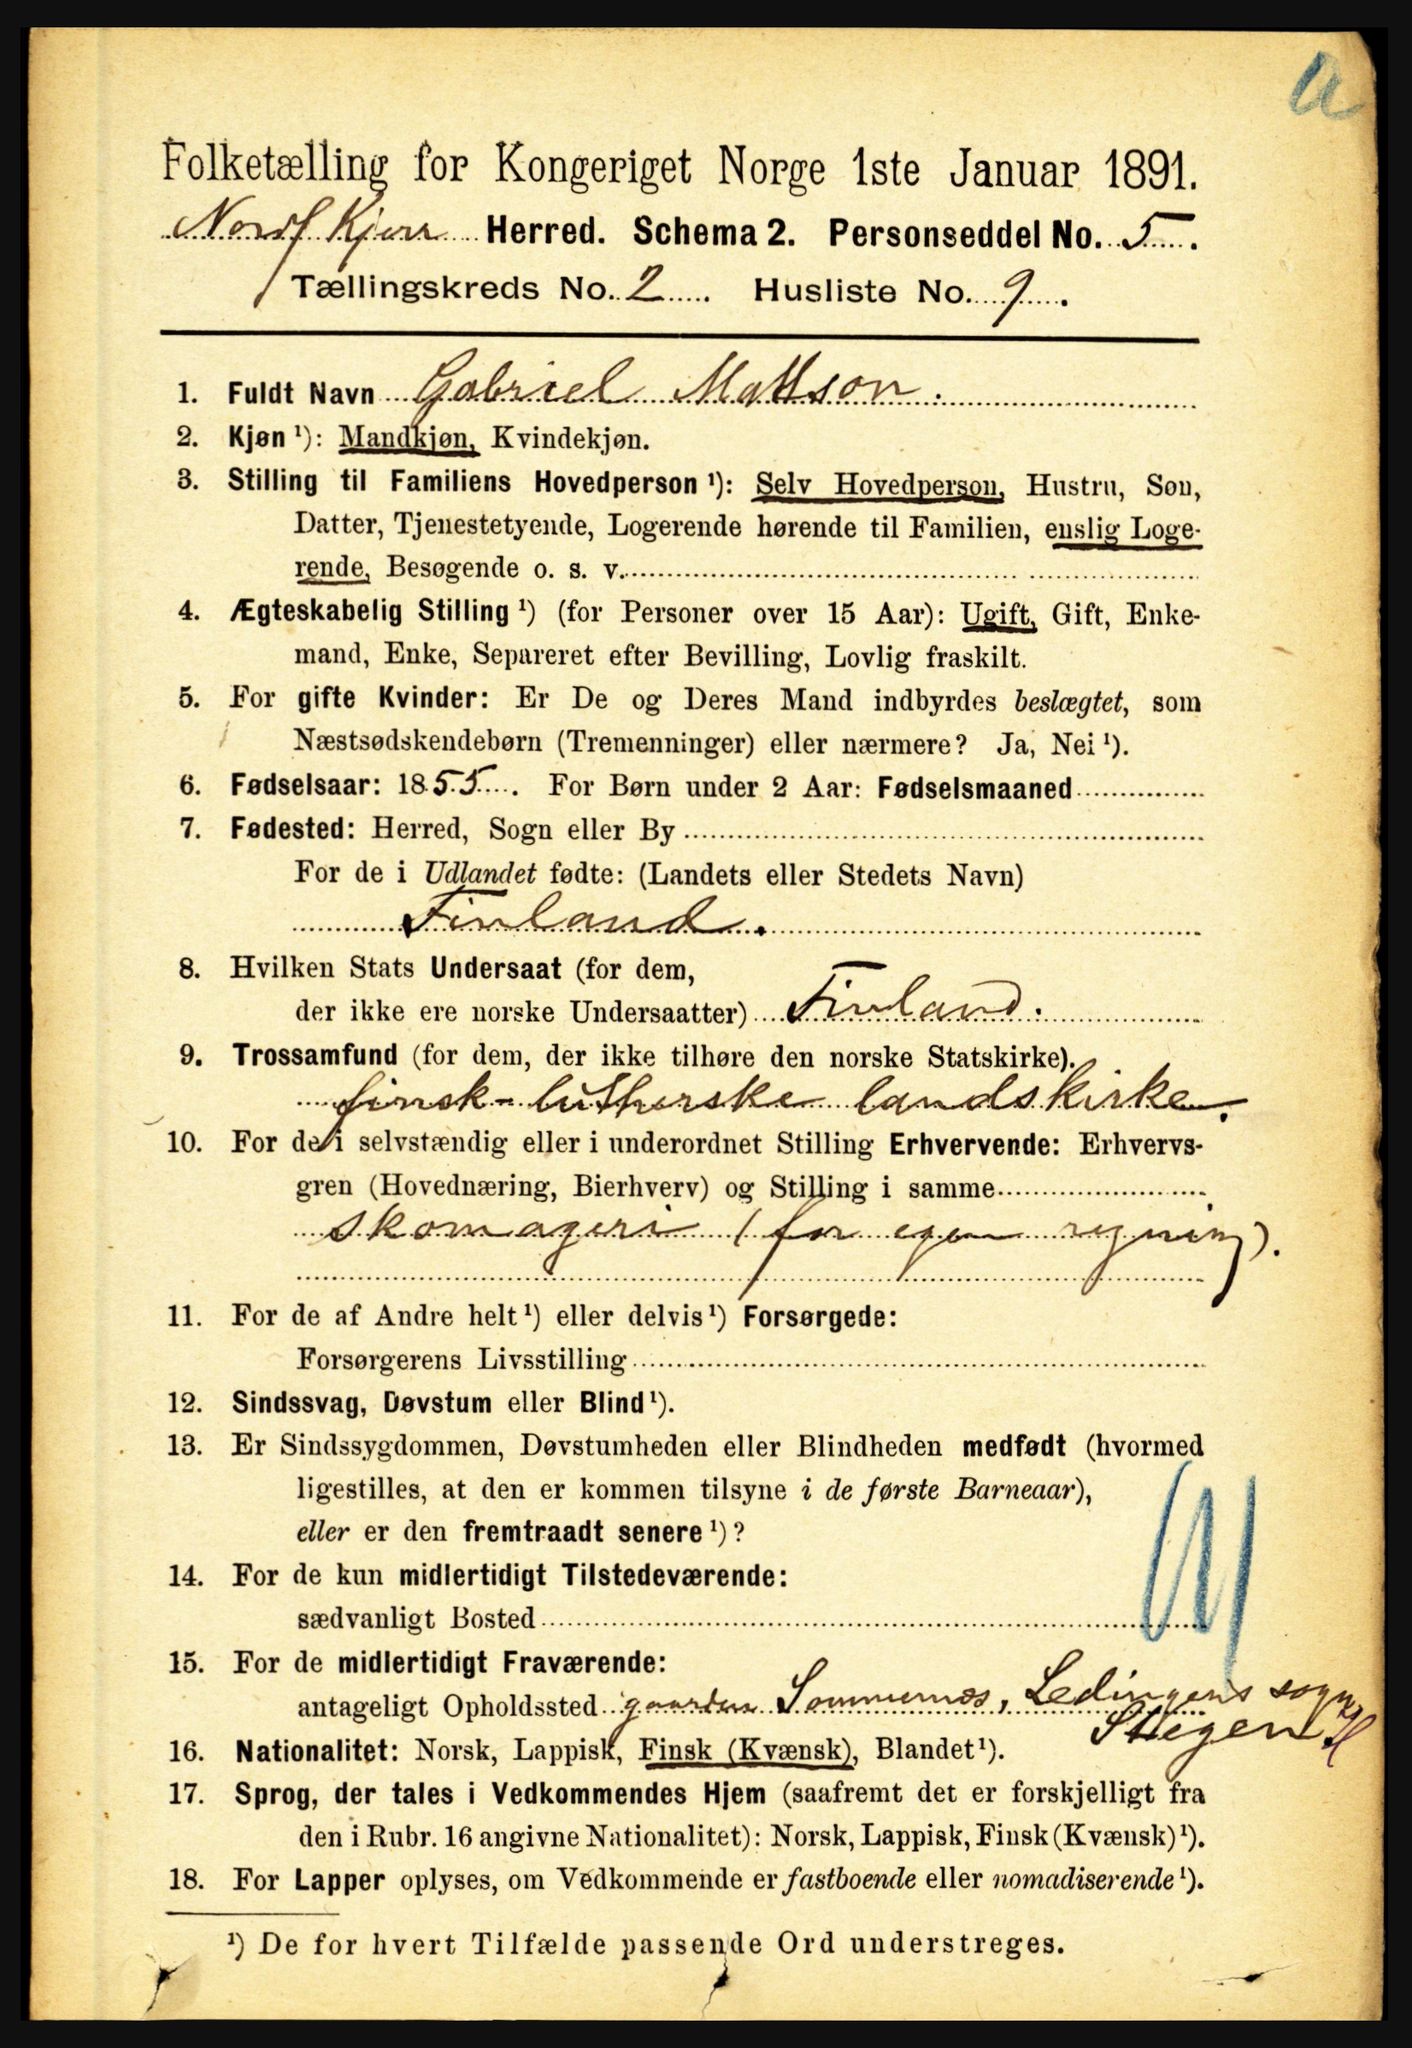 a
Folketælling for Kongeriget Norge 1ste Januar 1891.
Herred. Schema 2. Personseddel No. 5.
Tællingskreds No. 2. Husliste No. 9.
1. Fuldt Navn Gabriel Mattson.
2. Kjøn ¹): Mandkjøn, Kvindekjøn.
3. Stilling til Familiens Hovedperson ¹): Selv Hovedperson, Hustru, Søn,
Datter, Tjenestetyende, Logerende hørende til Familien, enslig Loge-
rende, Besøgende o. s. v.
4. Ægteskabelig Stilling ¹) (for Personer over 15 Aar): Ugift, Gift, Enke-
mand, Enke, Separeret efter Bevilling, Lovlig fraskilt.
5. For gifte Kvinder: Er De og Deres Mand indbyrdes beslægtet, som
Næstsødskendebørn (Tremenninger) eller nærmere? Ja, Nei ¹).
6. Fødselsaar: 1855. For Børn under 2 Aar: Fødselsmaaned
7. Fødested: Herred, Sogn eller By
For de i Udlandet fødte: (Landets eller Stedets Navn)
Finland.
8. Hvilken Stats Undersaat (for dem,
der ikke ere norske Undersaatter) Finland.
9. Trossamfund (for dem, der ikke tilhøre den norske Statskirke).
finsk-lutherske landskirke.
10. For de i selvstændig eller i underordnet Stilling Erhvervende: Erhvervs-
gren (Hovednæring, Bierhverv) og Stilling i samme
skomageri (for egen regning).
11. For de af Andre helt ¹) eller delvis ¹) Forsørgede:
Forsørgerens Livsstilling
12. Sindssvag, Døvstum eller Blind ¹).
13. Er Sindssygdommen, Døvstumheden eller Blindheden medfødt (hvormed
ligestilles, at den er kommen tilsyne i de første Barneaar),
eller er den fremtraadt senere ¹)?
14. For de kun midlertidigt Tilstedeværende:
sædvanligt Bosted
15. For de midlertidigt Fraværende:
antageligt Opholdssted gaarden Sommernes, Ledingens sogn
Steigen
16. Nationalitet: Norsk, Lappisk, Finsk (Kvænsk), Blandet ¹).
17. Sprog, der tales i Vedkommendes Hjem (saafremt det er forskjelligt fra
den i Rubr. 16 angivne Nationalitet): Norsk, Lappisk, Finsk (Kvænsk) ¹).
18. For Lapper oplyses, om Vedkommende er fastboende eller nomadiserende ¹).
¹) De for hvert Tilfælde passende Ord understreges.